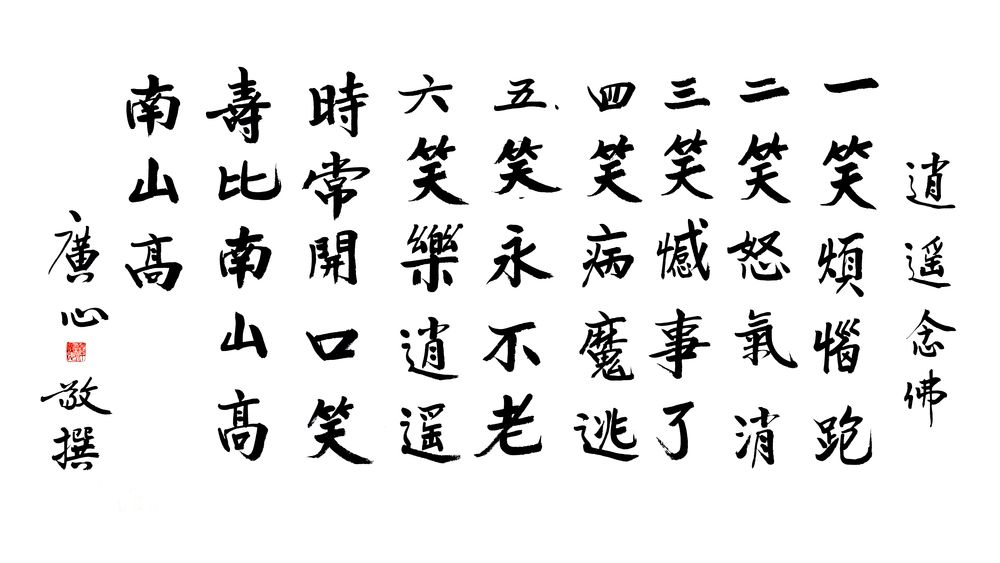 逍遥念佛
一笑煩惱跑
二笑怒氣消
三笑憾事了
四笑病魔逃
五笑永不老
六笑樂逍遥
時常開口笑
壽比南山高
南山高
廣心
敬撰